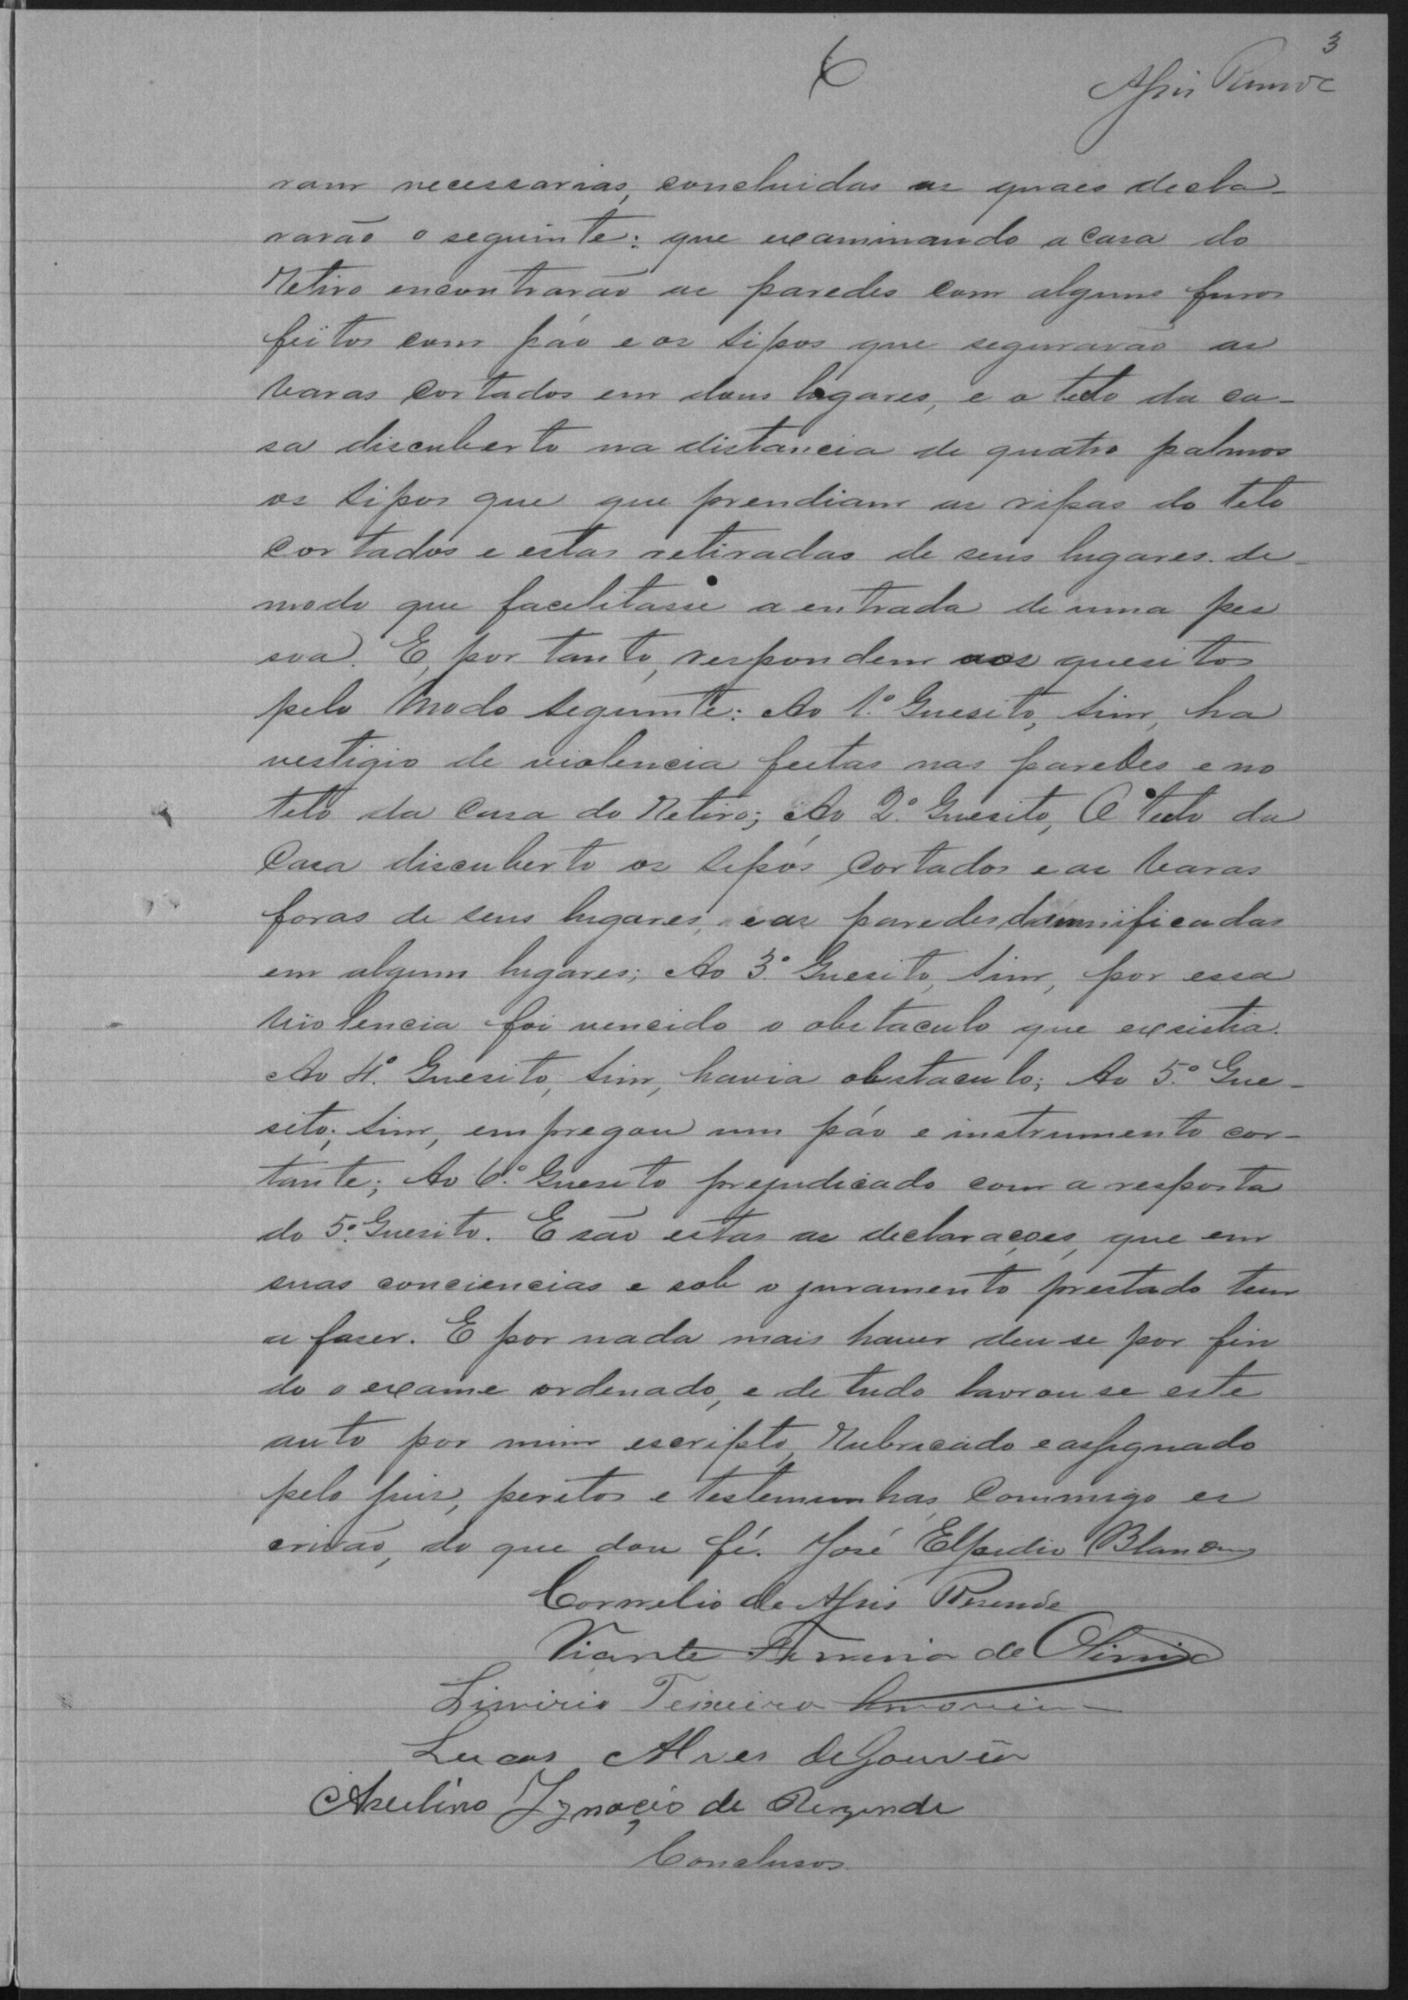 3
6
Assis Resende
ram necessarias, concluidas as quaes decla-
rarão o seguinte: que examinando a casa do
Retiro encontrarão as paredes com alguns furos
feitos com páo e os sipos que segurarão as
varas cortados em dous lugares, e o teto da ca-
sa discuberto na distancia de quatro palmos
os sipos que que prendiam as ripas do teto
cortados e estas retiradas de seus lugares. de-
modo que facilitasse a entrada de uma pes
soa. E, por tanto, respondem aos quesitos
pelo modo seguinte: Ao 1.º Quesito, sim, ha
vestigio de violencia feitas nas paredes e no
teto da casa do Retiro; Ao 2.º Quesito, O teto da
Casa discuberto os sipós cortados e as varas
foras de seus lugares, e as paredes damnificadas
em alguns lugares; Ao 3.º Quesito, sim, por essa
violencia foi vencido o obstaculo que exsistia.
Ao 4.º Quesito, sim, havia obstaculo; Ao 5.º Que-
sito; sim, empregou um páo e instrumento cor-
tante; Ao 6.º Quesito prejudicado com a resposta
do 5.º Quesito. E são estas as declarações, que em
suas conciencias e sob o juramento prestado tem
a faser. E por nada mais haver deu se por fin
do o exame ordenado, e de tudo lavrou se este
auto por mim escripto, Rubricado e assignado
pelo juis, peritos e testemunhas, Commigo es
crivão, do que dou fé. José Elpidio Blanc
Cornelio de Assis Resende
Vicente Ferreira de Oliveira
Limirio Teixeira Amorim
Lucas Alves de Gouvêa
Aselino Ignacio de Rezende
Conclusos